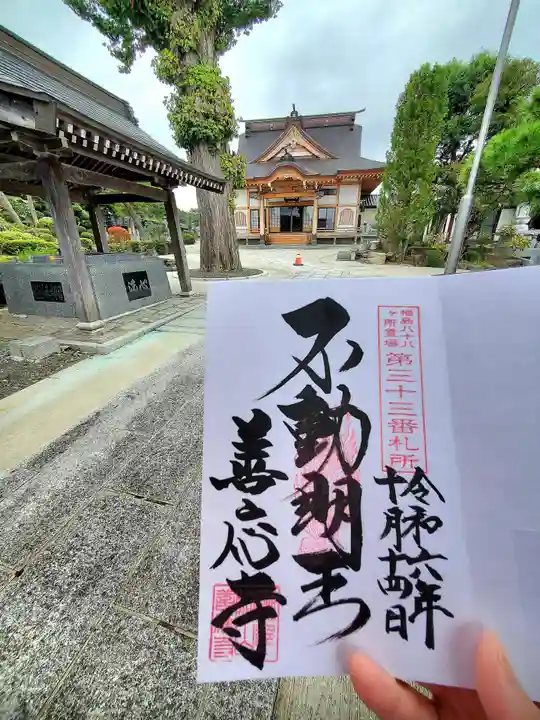 福島八十八
ヶ所霊場
第三十三番札所
令和六年
十月十四日
不動明王
善応寺
洗心